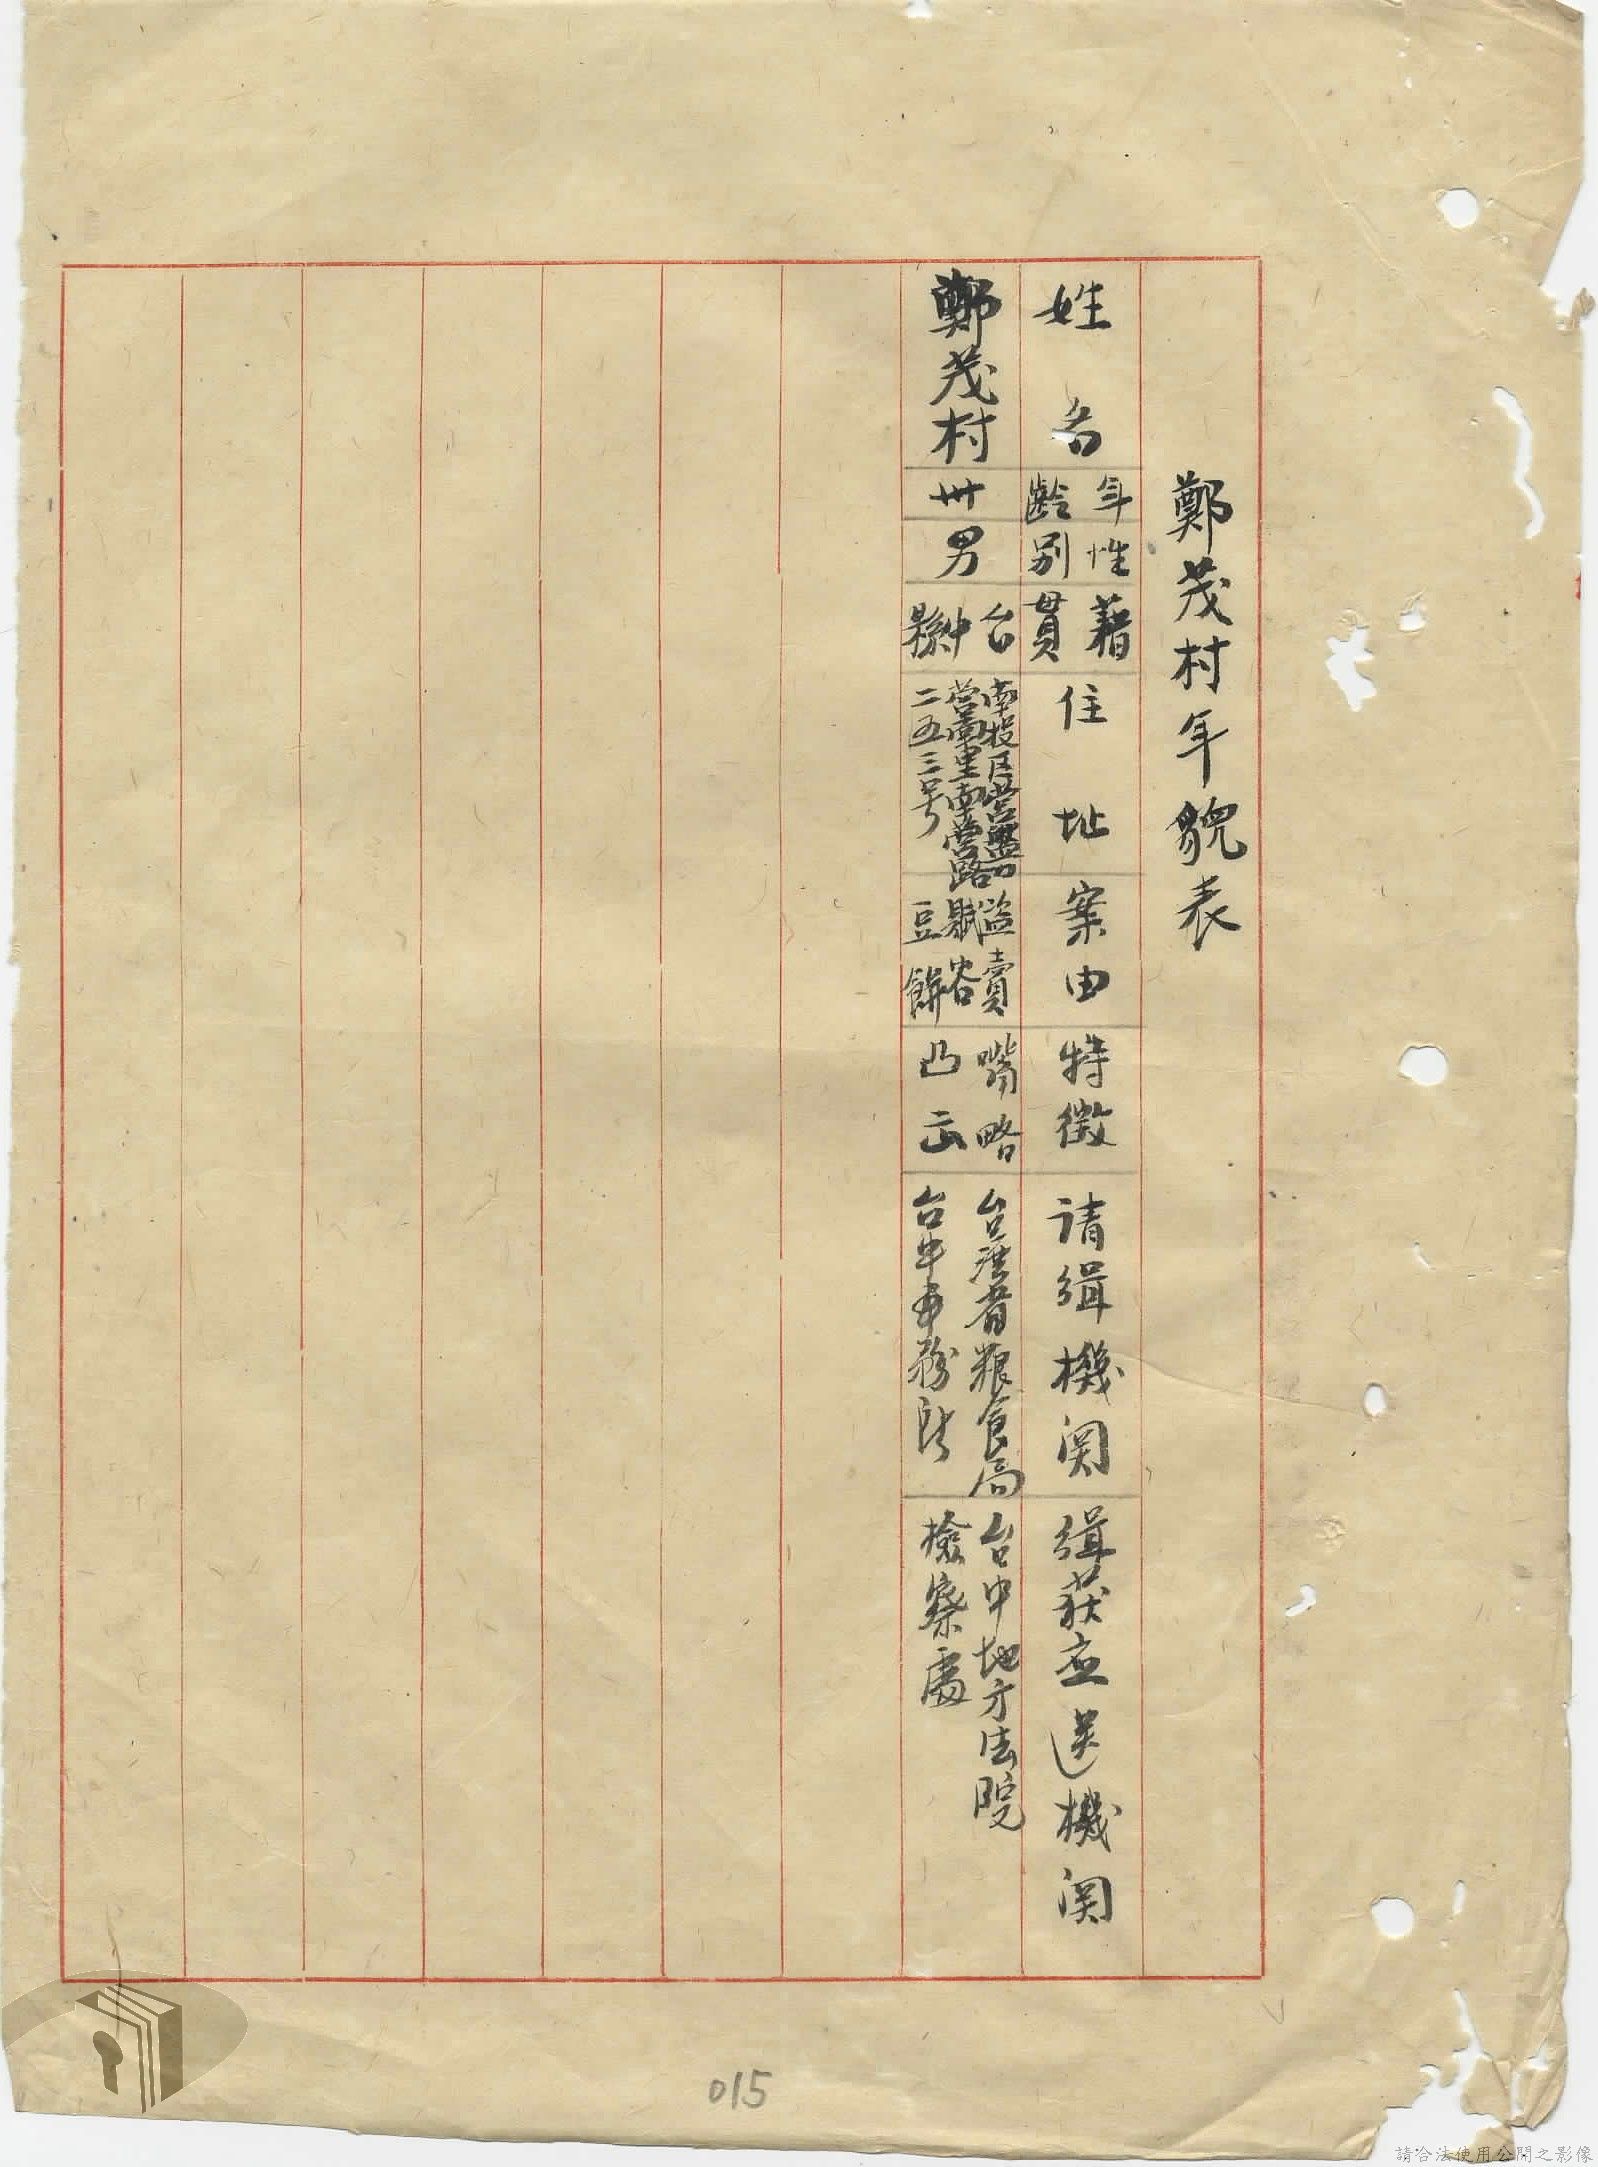 鄭茂村年貌表
姓名
年齡
性別
藉貫
住址
案由
特徵
请缉機関
缉获应送機関
鄭茂村
卅
男
台中縣
南投区营盤口
营南里南营路
二五三号
盜賣
賦谷
豆餅
嘴略
凸出
台湾省粮食局
台中事務所
台中地方法院
檢察處
015
請合法使用公開之影像